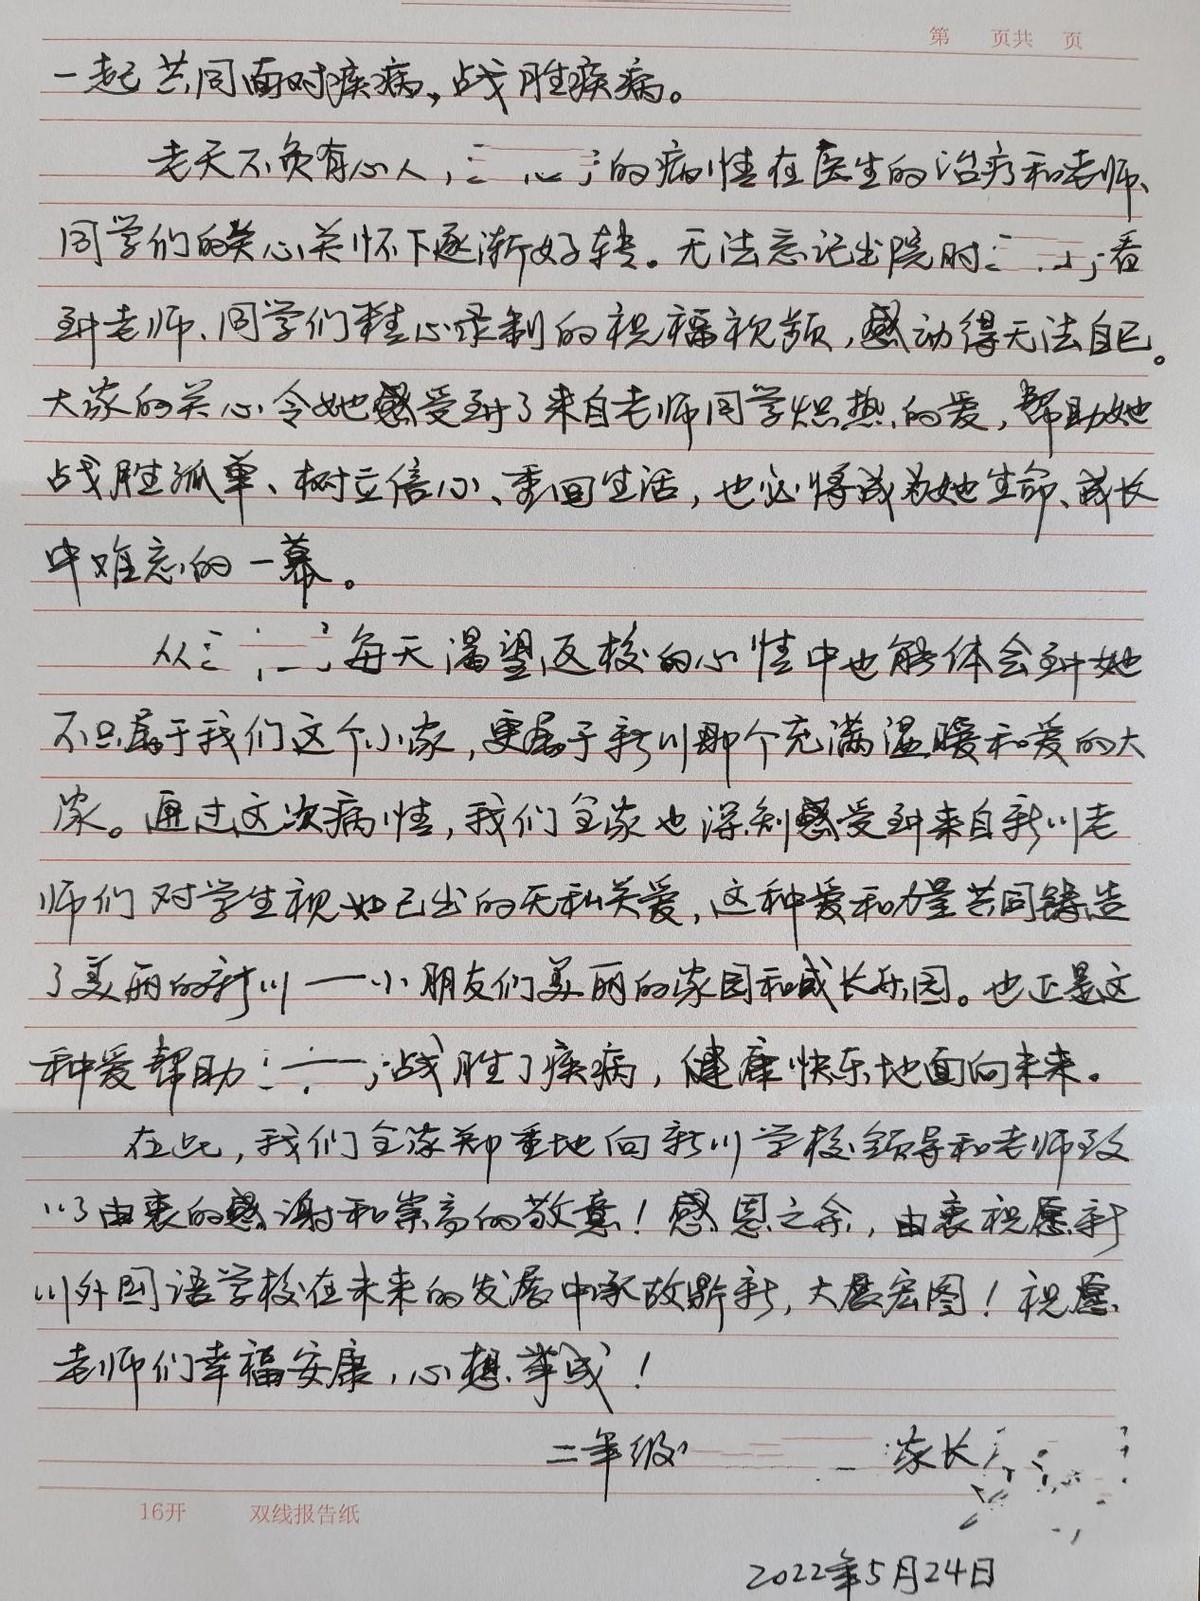 第 页共 页
一起共同面对疾病,战胜疾病。
老天不负有心人, 的病情在医生的治疗和老师、
同学们的关心关怀下逐渐好转。无法忘记出院时 看
到老师、同学们精心录制的祝福视频,感动得无法自已。
大家的关心令她感受到了来自老师同学炽热的爱,帮助她
战胜孤单、树立信心、重回生活,也必将成为她生命、成长
中难忘的一幕。
从 每天渴望返校的心情中也能体会到她
不只属于我们这个小家,更属于新川那个充满温暖和爱的大
家。通过这次病情,我们全家也深刻感受到来自新川老
师们对学生视如己出的无私关爱,这种爱和力量共同铸造
了美丽的新川——小朋友们美丽的家园和成长乐园。也正是这
种爱帮助 战胜了疾病,健康快乐地面向未来。
在此,我们全家郑重地向新川学校领导和老师致
以由衷的感谢和崇高的敬意!感恩之余,由衷祝愿新
川外国语学校在未来的发展中承故鼎新,大展宏图!祝愿
老师们幸福安康,心想事成!
二年级 家长
16开 双线报告纸
2022年5月24日